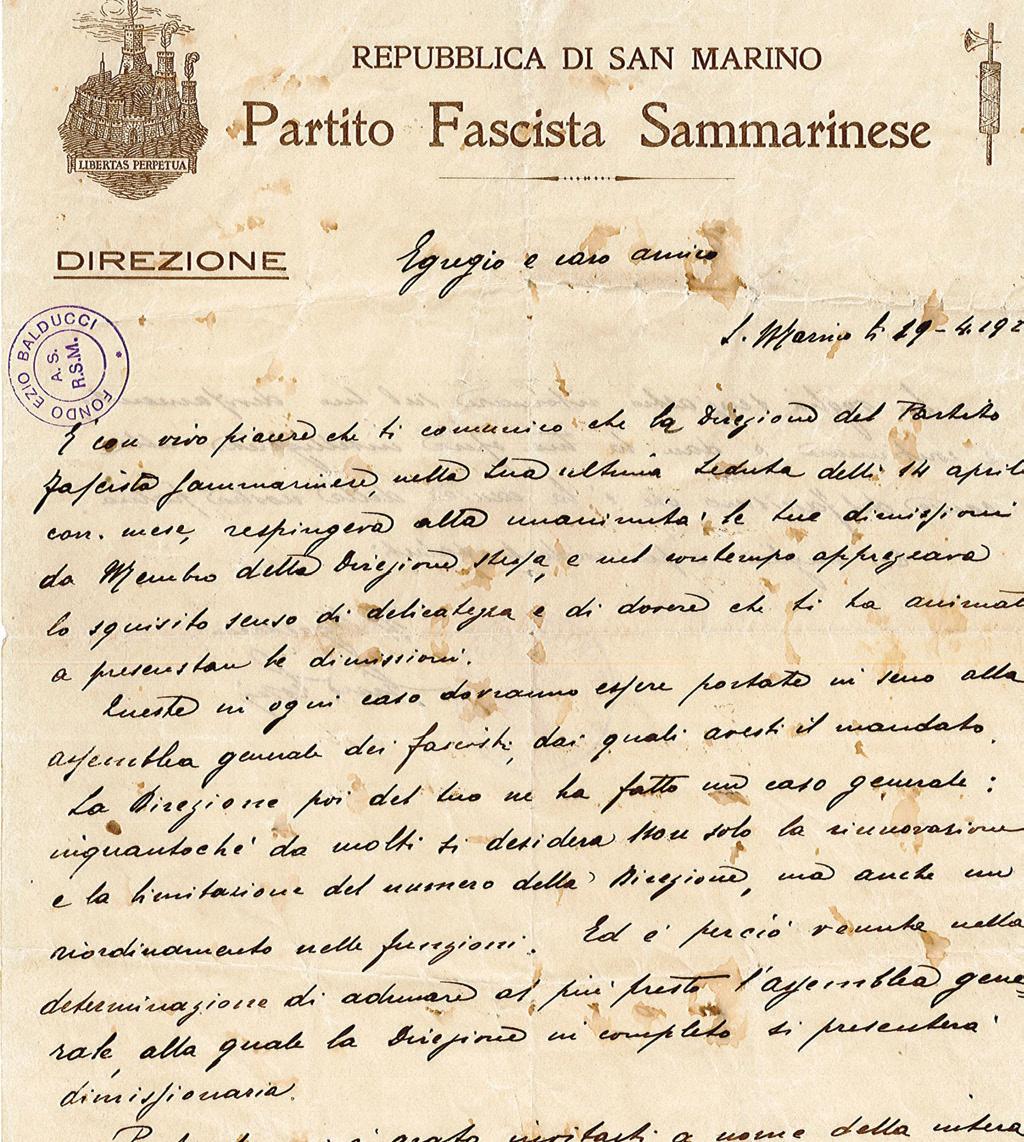 REPUBBLICA DI SAN MARINO
Partito Fascista Sammarinese
LIBERTAS PERPETUA
DIREZIONE
Egregio e caro amico
S. Marino li 29-4.192
FONDO EZIO BALDUCCI
A. S.
R.S.M.
E' con vivo piacere che ti comunico che la Direzione del Partito
Fascista Sammarinese, nella sua ultima seduta delli 14 april
corr. mese, respingeva alla unanimità le tue dimissioni
da Membro della Direzione stessa, e nel contempo apprezzava
lo squisito senso di delicatezza e di dovere che ti ha animat
a presentare le dimissioni.
Queste in ogni caso dovranno essere portate in seno alla
assemblea generale dei fascisti, dai quali avesti il mandato.
La Direzione poi del tuo ne ha fatto un caso generale:
inquantoché da molti si desidera non solo la rinnovazione
e la limitazione del numero della Direzione, ma anche un
riordinamento nelle funzioni. Ed è perciò venuta nella
determinazione di adunare al più presto l'assemblea gene=
rale, alla quale la Direzione in completo si presenterà
dimissionaria.
grato invitarti a nome della intera